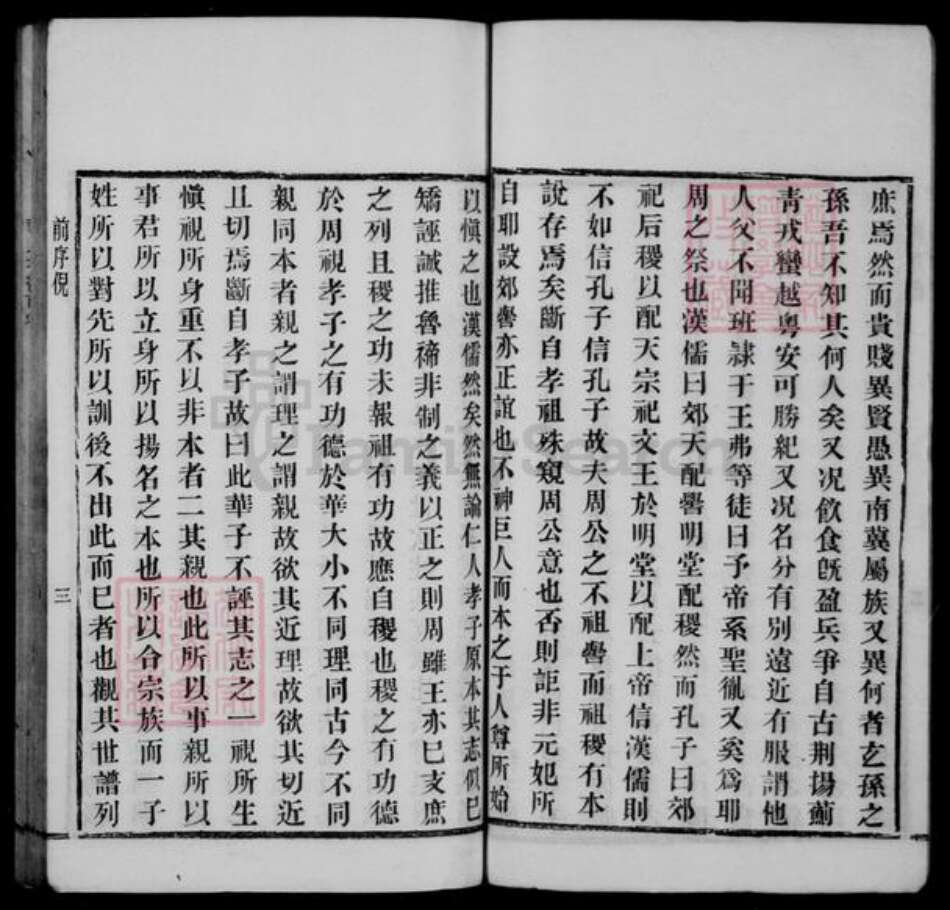 庶焉然而貴賤異賢愚異南冀屬族又異何者玄孫之
孫吾不知其何人矣又况飲食旣盈兵爭自古荆揚薊
靑戎蠻越粵安可勝紀又况名分有別遠近有服謂他
人父不聞班隷于王弗等徒曰予帝系聖胤又奚爲耶
周之祭也漢儒曰郊天配嚳明堂配稷然而孔子曰郊
祀后稷以配天宗祀文王於明堂以配上帝信漢儒則
不如信孔子信孔子故夫周公之不祖嚳而祖稷有本
說存焉矣斷自孝祖殊窺周公意也否則詎非元妃所
自耶設郊嚳亦正誼也不神巨人而本之于人尊所始
以愼之也漢儒然矣然無論仁人孝子原本其志似已
矯誣誠推魯禘非制之義以正之則周雖王亦已支庶
之列且稷之功未報祖有功故應自稷也稷之有功德
於周視孝子之有功德於華大小不同理同古今不同
親同本者親之謂理之謂親故欲其近理故欲其切近
且切焉斷自孝子故曰此華子不誣其志之一視所生
愼視所身重不以非本者二其親也此所以事親所以
事君所以立身所以揚名之本也所以合宗族而一子
姓所以對先所以訓後不出此而已者也觀其世譜列
前序倪
三
Family Search